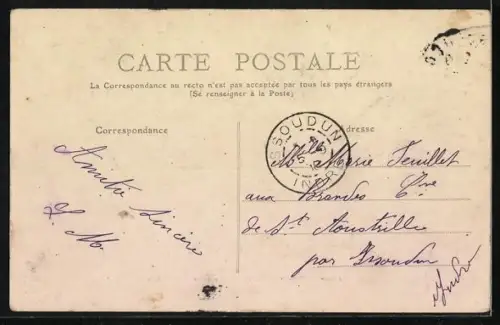 CARTE POSTALE
La Correspondance au recto n'est pas acceptée par tous les pays étrangers
(Se renseigner à la Poste)
Correspondance
Adresse
Amitié Sincère
L. M.
ISSOUDUN
INDRE
Mlle Marie Feuillet
aux Brandes Cne
de Ste Aoustrille
par Issoudun
Indre